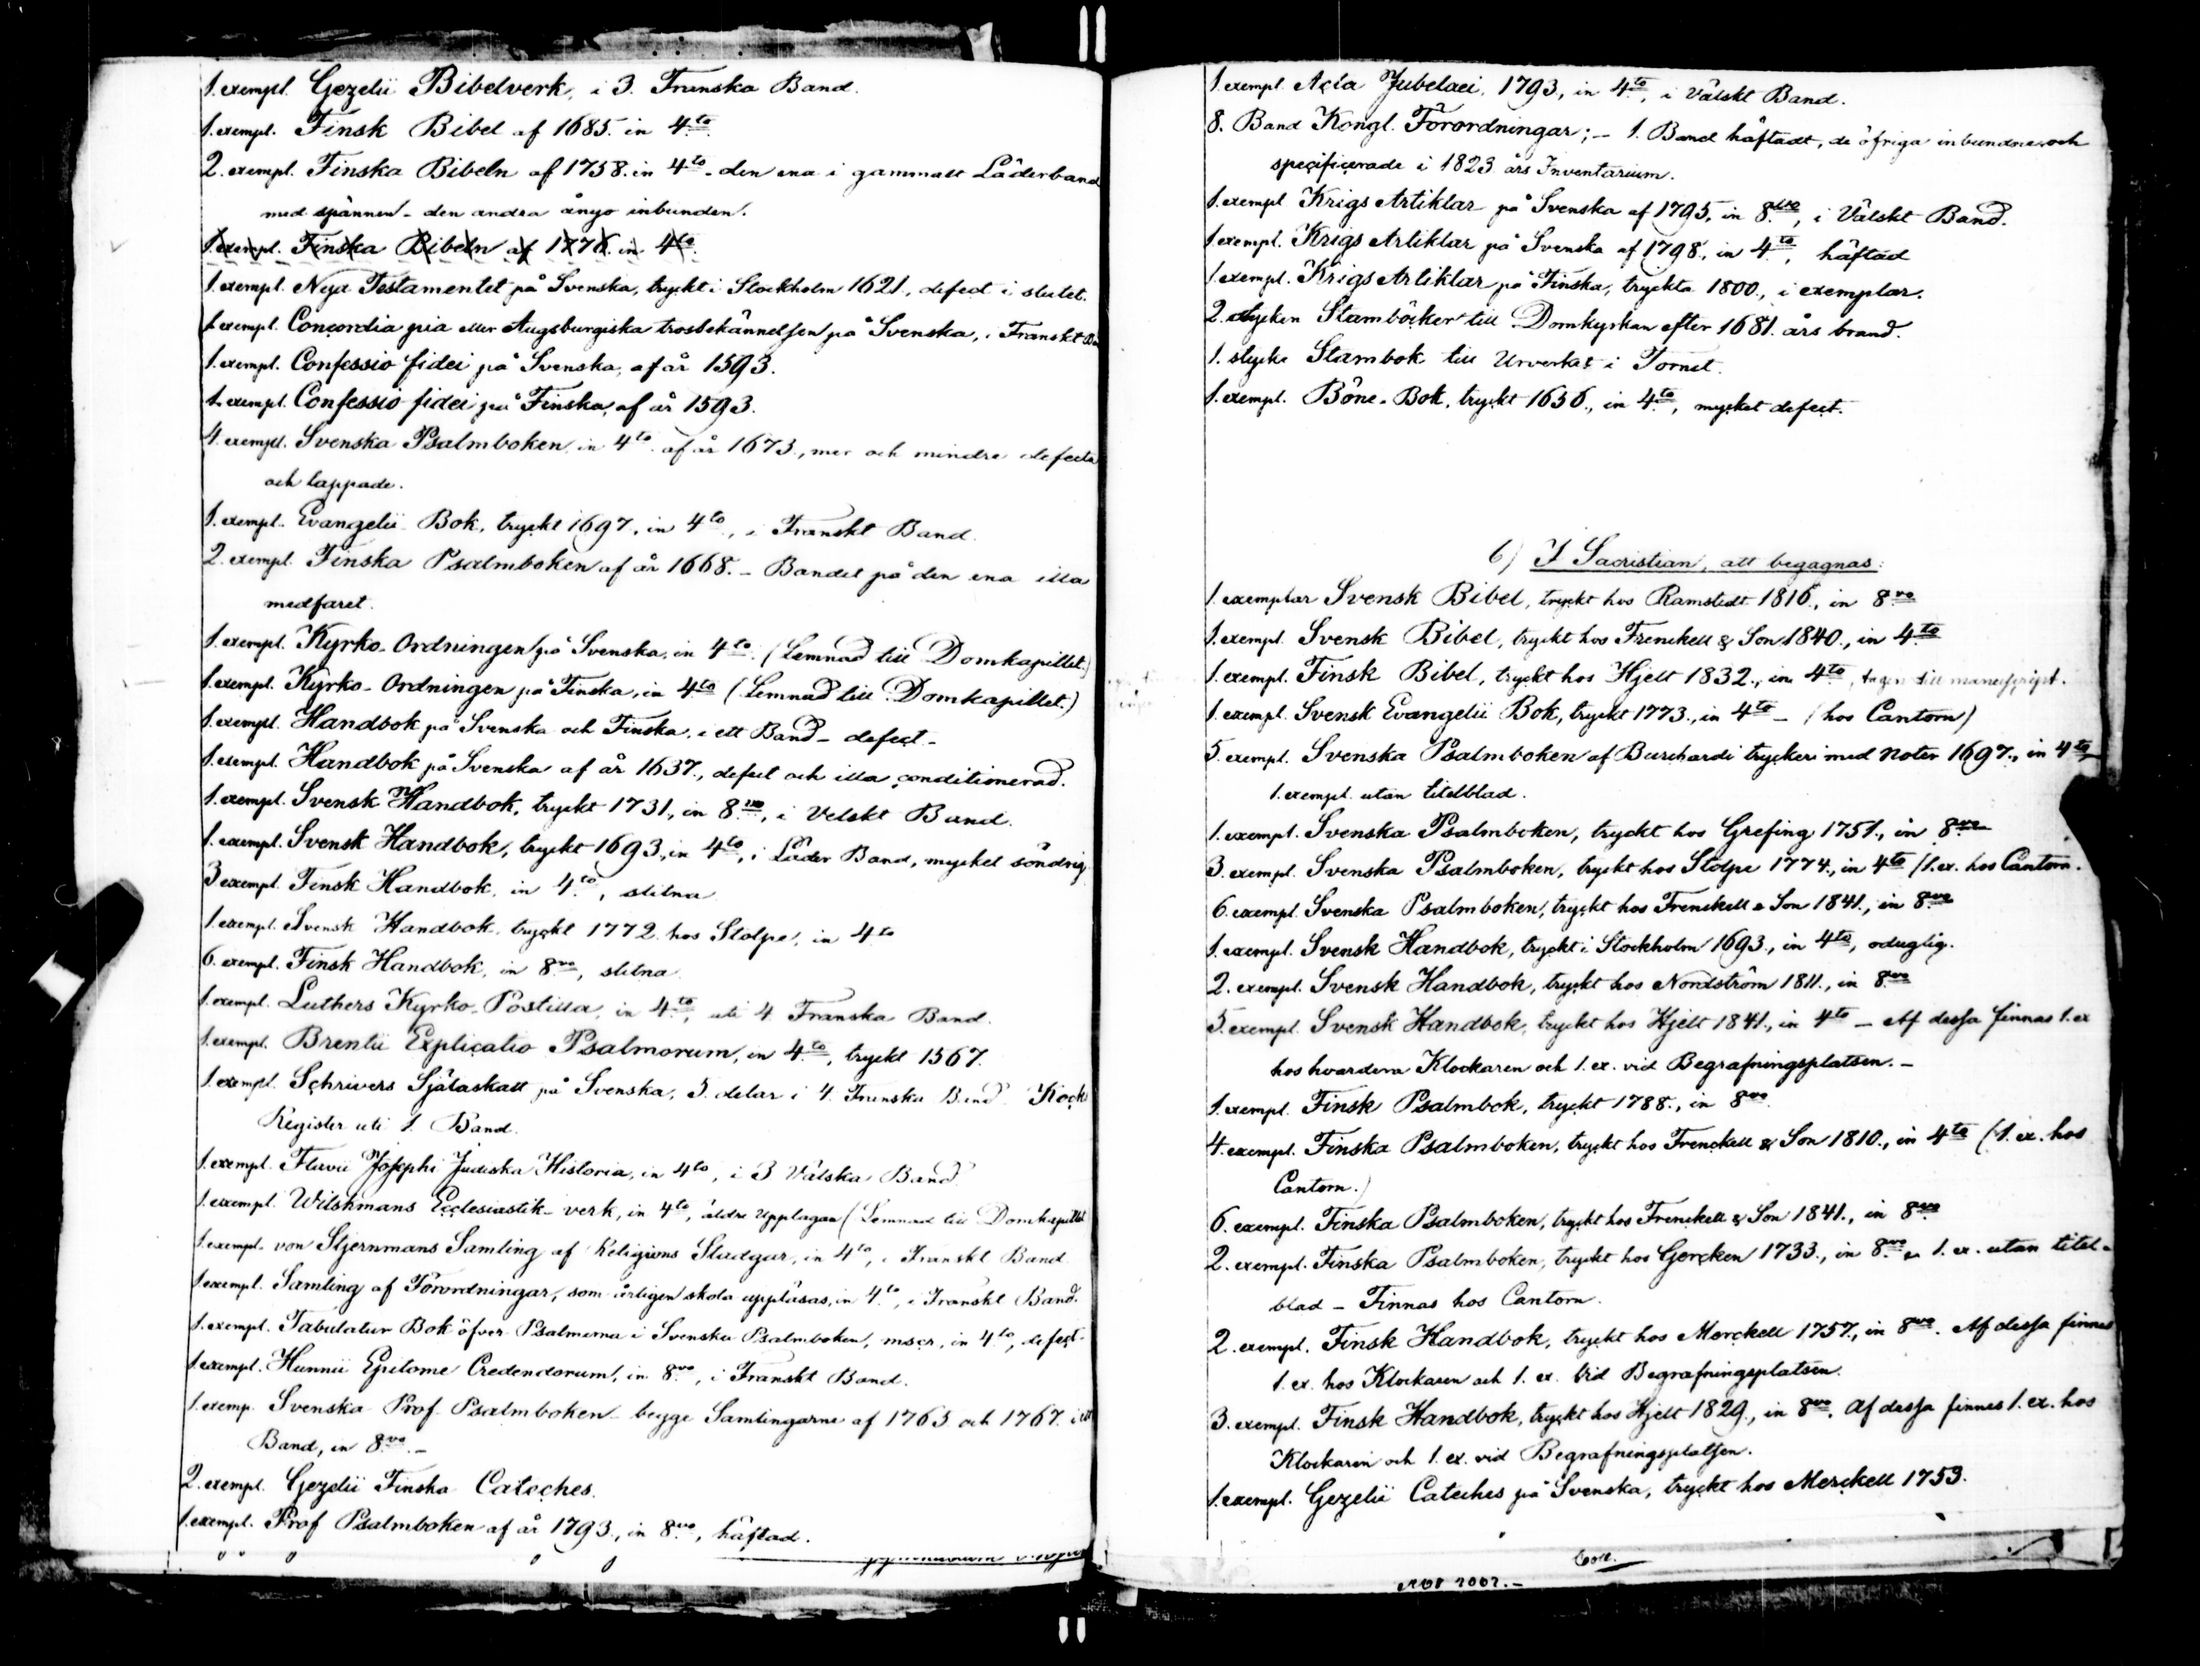 1. exempl. Gezelii Bibelverk, i 3. Franska Band.
1. exempl. Finsk Bibel af 1685. in 4to.
2. exempl. Finska Bibeln af 1758. in 4to - den ena i gammalt Läderband
med spännen - den andra ånyo inbunden.
1. exempl. Finska Bibeln af 1776. in 4to.
1. exempl. Nya Testamentet på Svenska, tryckt i Stockholm 1621, defect i slutet.
1. exempl. Concordia pia eller Augsburgiska trosbekännelsen på Svenska, i Franskt
1. exempl. Confessio fidei på Svenska, af år 1593.
1. exempl. Confessio fidei på Finska, af år 1593.
4. exempl. Svenska Psalmboken, in 4to af år 1673., mer och mindre defecta
och lappade.
1. exempl. Evangelii Bok, tryckt 1697, in 4to, i Franskt Band.
2. exempl. Finska Psalmboken af år 1668. - Bandet på den ena illa
medfaret.
1. exempl. Kyrko-Ordningen på Svenska, in 4to. (Lemnad till Domkapitlet.)
1. exempl. Kyrko-Ordningen på Finska, in 4to (Lemnad till Domkapitlet.)
1. exempl. Handbok på Svenska och Finska, i ett Band - defect -
1. exempl. Handbok på Svenska af år 1637., defect och illa conditionerad.
1. exempl. Svensk Handbok, tryckt 1731., in 8vo, i Velskt Band.
1. exempl. Svensk Handbok, tryckt 1693., in 4to, i Läder Band, mycket söndrig.
3 exempl. Finsk Handbok, in 4to, slitna
1. exempl. Svensk Handbok, tryckt 1772. hos Stolpe, in 4to
6. exempl. Finsk Handbok, in 8vo, slitna
1. exempl. Luthers Kyrko-Postilla, in 4to, uti 4. Franska Band.
1. exempl. Brentii Explicatio Psalmorum, in 4to, tryckt 1567.
1. exempl. Schrivers Själaskatt på Svenska, 5. delar i 4. Franska Band.
Register uti 1. Band.
1. exempl. Flavii Josephi Judiska Historia, in 4to, i 3 Välska Band.
1. exempl. Wilskmans Ecclesiastik-verk, in 4to, äldre Upplagan (Lemnad till Domkapitlet
1. exempl. von Stjernmans Samling af Religions Stadgar, in 4to, i Franskt Band.
1. exempl. Samling af Förordningar, som årligen skola uppläsas, in 4to, i Franskt Band.
1. exempl. Tabulatur Bok öfver Psalmerna i Svenska Psalmboken, mscr, in 4to, defect.
1. exempl. Hunnii Epitome Credendorum, in 8vo, i Franskt Band.
1. exemp. Svenska Prof Psalmboken begge Samlingarne af 1765 och 1767. i ett
Band, in 8vo. -
2. exempl. Gezelii Finska Cateches.
1. exempl. Prof Psalmboken af år 1793., in 8vo, häftad.
1. exempl. Acta Jubelaei, 1793, in 4to, i Välskt Band.
8. Band Kongl. Förordningar; - 1. Band häftadt, de öfriga inbundne och
specificerade i 1823 års Inventarium.
1. exempl Krigs Artiklar på Svenska af 1795, in 8vo, i Välskt Band.
1. exempl. Krigs Artiklar på Svenska af 1798., in 4to, häftad
1. exempl. Krigs Artiklar på Finska, tryckta 1800., i exemplar.
2. stycken Stamböcker till Domkyrkan efter 1681. års brand.
1. stycke Stambok till Urverket i Tornet.
1. exempl. Böne-Bok, tryckt 1656., in 4to, mycket defect.
6) I Sacristian, att begagnas:
1. exemplar Svensk Bibel, tryckt hos Ramstedt 1816., in 8vo
1. exempl. Svensk Bibel, tryckt hos Frenckell & Son 1840., in 4to
1. exempl. Finsk Bibel, tryckt hos Hjelt 1832., in 4to, tagen till manuscript.
1. exempl. Svensk Evangelii Bok, tryckt 1773., in 4to - (hos Cantorn)
5. exempl. Svenska Psalmboken af Burchardi tryckeri med Noter 1697., in 4to,
1. exempl. utan titelblad.
1. exempl. Svenska Psalmboken, tryckt hos Grefing 1751., in 8vo
3. exempl. Svenska Psalmboken, tryckt hos Stolpe 1774., in 4to (1. ex. hos Cantorn.
6. exempl. Svenska Psalmboken, tryckt hos Frenckell & Son 1841., in 8vo
1. exempl. Svensk Handbok, tryckt i Stockholm 1693., in 4to, oduglig.
2. exempl. Svensk Handbok, tryckt hos Nordström 1811., in 8vo
5. exempl. Svensk Handbok, tryckt hos Hjelt 1841., in 4to - Af dessa finnas 1. ex
hos hvardera Klockaren och 1. ex. vid Begrafningsplatsen. -
1. exempl. Finsk Psalmbok, tryckt 1788., in 8vo.
4. exempl. Finska Psalmboken, tryckt hos Frenckell & Son 1810., in 4to (1. ex. hos
Cantorn.)
6. exempl. Finska Psalmboken, tryckt hos Frenckell & Son 1841., in 8vo
2. exempl. Finska Psalmboken, tryckt hos Gercken 1733., in 8vo - 1. ex. utan titel-
blad - Finnas hos Cantorn.
2. exempl. Finsk Handbok, tryckt hos Merckell 1757., in 8vo. Af dessa finnes
1. ex. hos Klockaren och 1. ex. vid Begrafningsplatsen.
3. exempl. Finsk Handbok, tryckt hos Hjelt 1829., in 8vo. Af dessa finnes 1. ex. hos
Klockaren och 1. ex. vid Begrafningsplatsen.
1. exempl. Gezelii Cateches på Svenska, tryckt hos Merckell 1753.